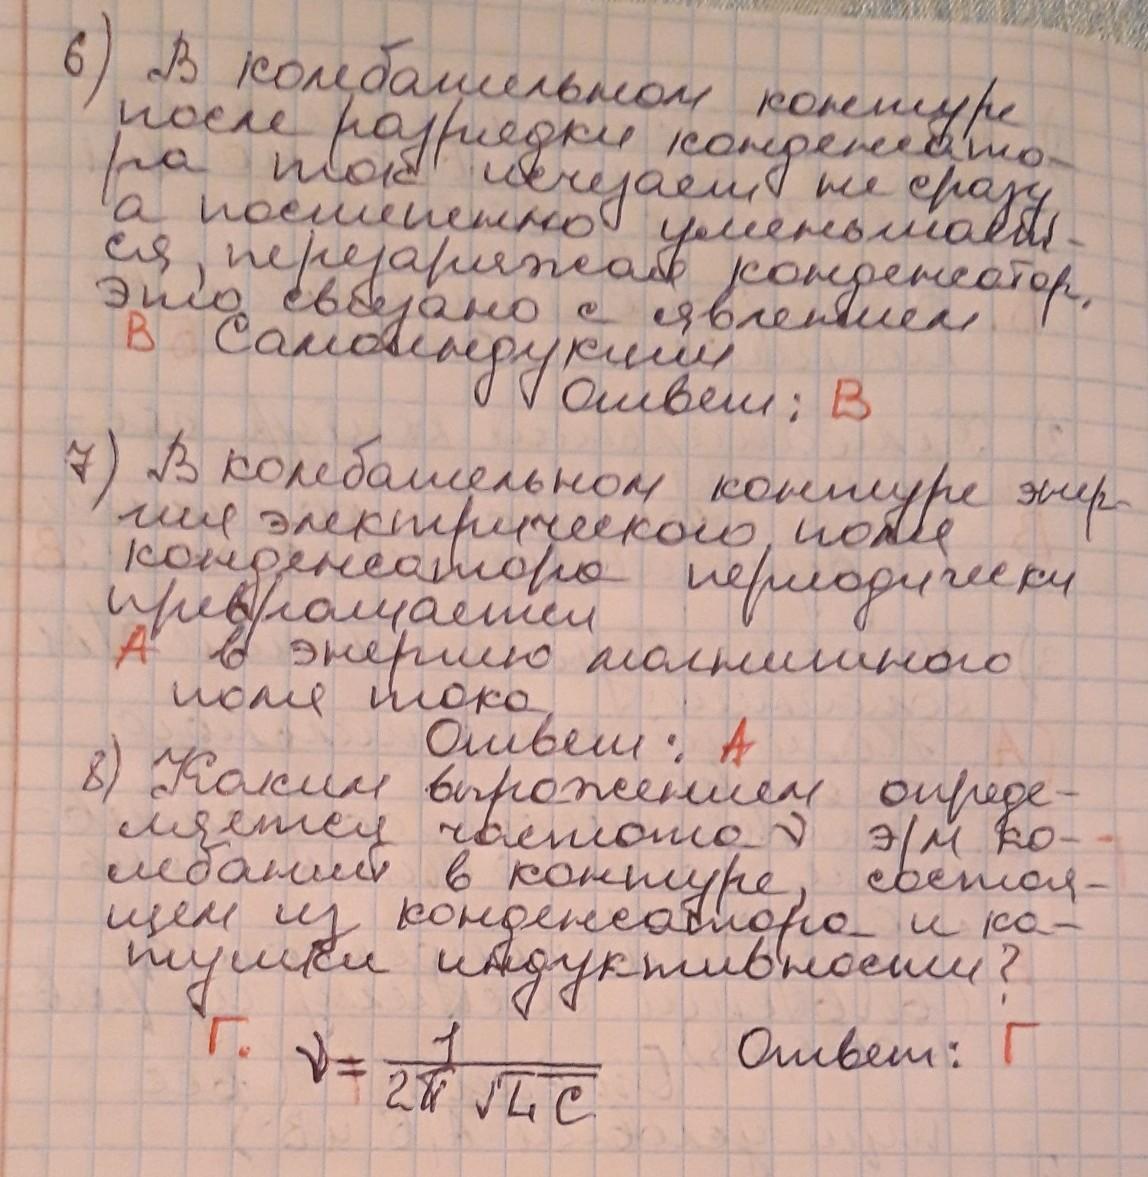 6) В колебательном контуре
после разрядки конденсато-
ра ток исчезает не сразу
а постепенно уменьшает-
ся, перезаряжая конденсатор.
Это связано с явлением
В Самоиндукции
Ответ: В
7) В колебательном контуре энер-
гия электрического поля
конденсатора периодически
превращается
А в энергию магнитного
поля тока
Ответ: А
8) Каким выражением опреде-
ляется частота ν э/м ко-
лебаний в контуре, состоя-
щем из конденсатора и ка-
тушки индуктивности?
Г. ν = 1 / 2π √LC Ответ: Г